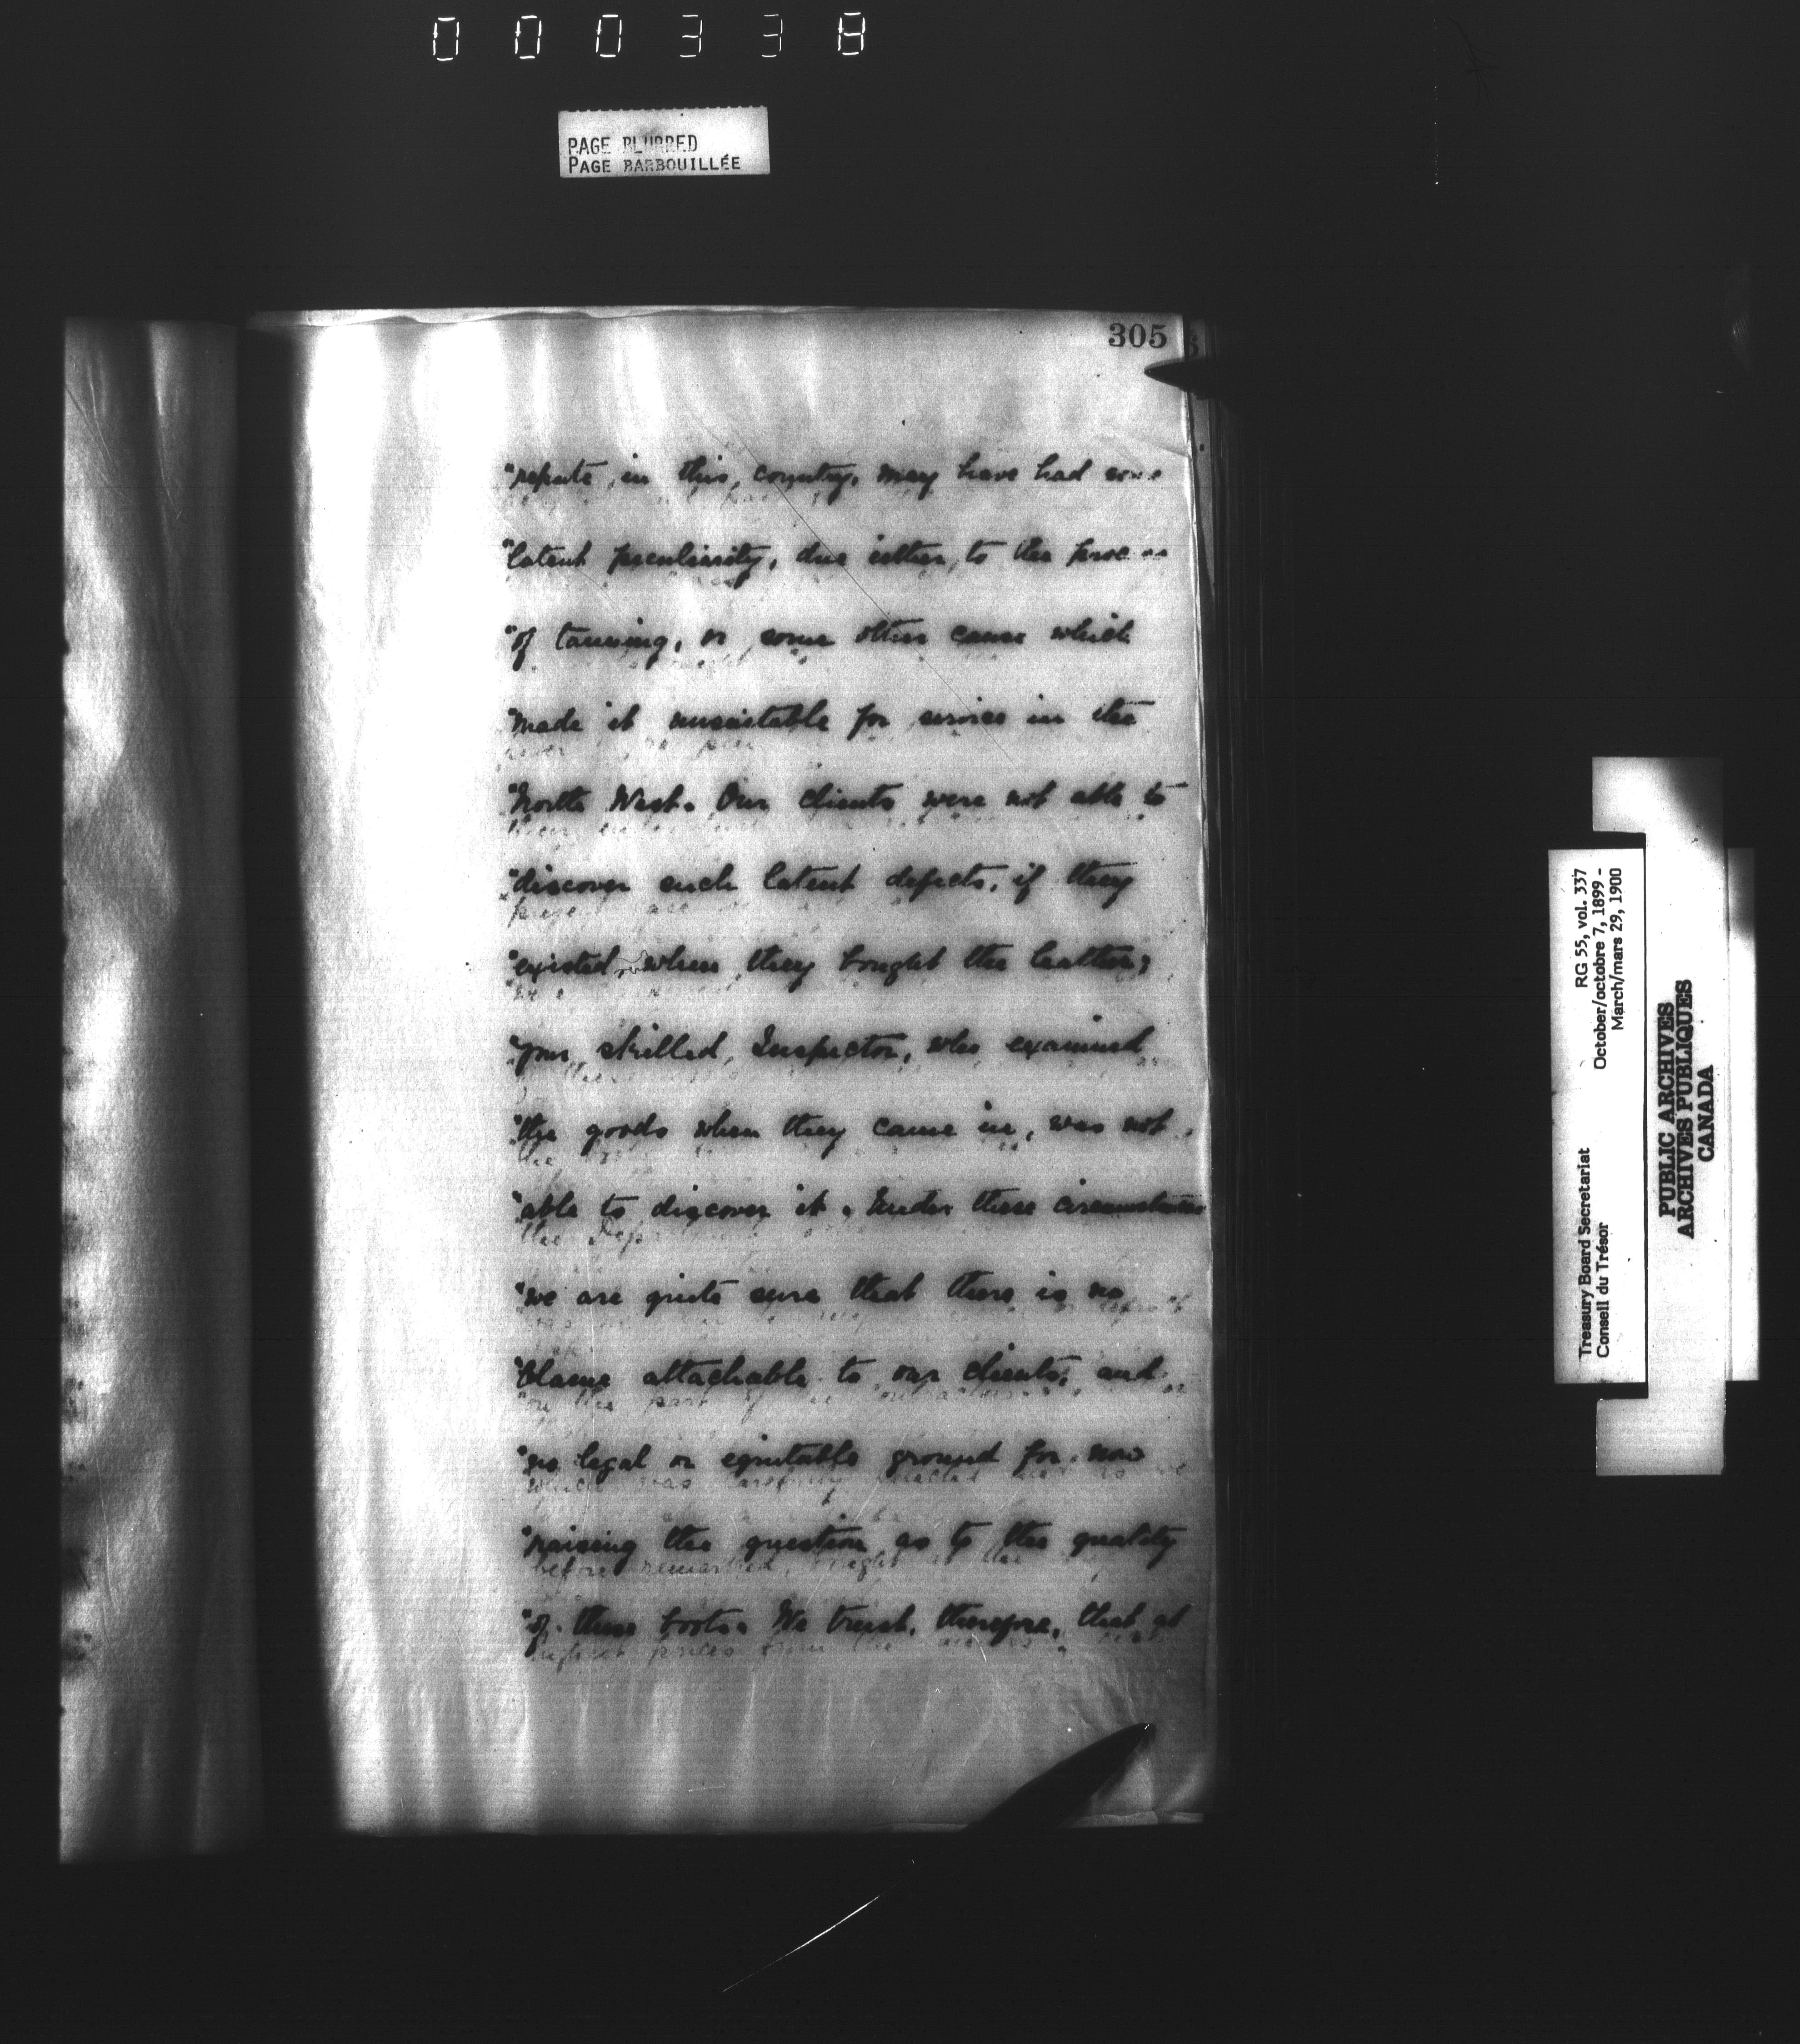 000338
PAGE BLURRED
PAGE BARBOUILLÉE
305
"repute in this country, may have had some
"latent peculiarity, due either to the process
"of tanning, or some other cause which
"made it unsuitable for service in the
"North West. Our clients were not able to
"discover such latent defects, if they
"existed when they bought the leather;
"your skilled Inspector, who examined
"the goods when they came in, was not
"able to discover it. Under these circumstances
"we are quite sure that there is no
"blame attachable to our clients, and
"no legal or equitable ground for now
"raising the question as to the quality
"of these boots. We trust, therefore, that at
Treasury Board Secretariat RG 55, vol. 337
Conseil du Trésor October/octobre 7, 1899 -
March/mars 29, 1900
PUBLIC ARCHIVES
ARCHIVES PUBLIQUES
CANADA